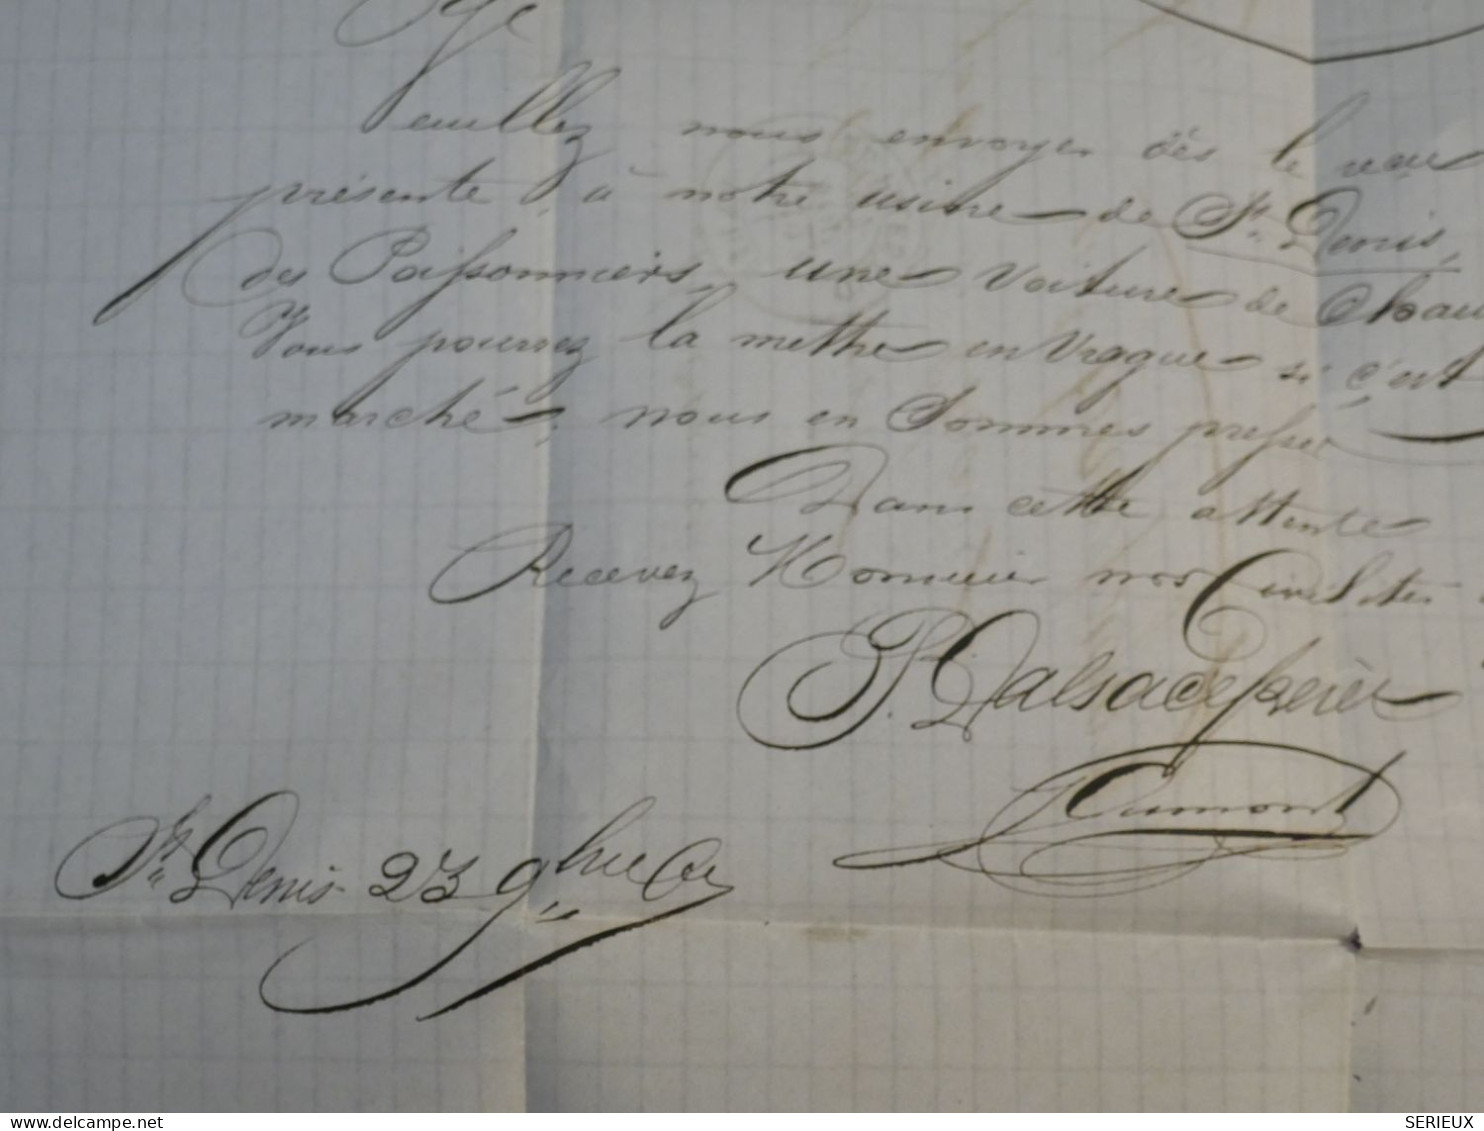 Veuillez nous envoyer dès le recue
présente, à notre usine de St. Denis,
des Poissonniers, une Voiture de Chau
Vous pourrez la mettre en Vrague si c'est
marché, nous en Sommes presser
Dans cette attente
Recevez Monsieur nos Civilités
P. Dalsace frères
Dumont
St. Denis 23 9bre
SERIEUX